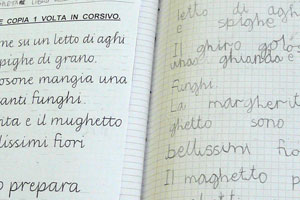 E COPIA 1 VOLTA IN CORSIVO.
ne su un letto di aghi
spighe di grano.
osone mangia una
anti funghi.
nta e il mughetto
lissimi fiori
o prepara
letto di aghi
e spighe
Il ghiro golos
una ghianda e
Funghi.
La margherit
ghetto sono
bellissimi fio
Il maghetto p